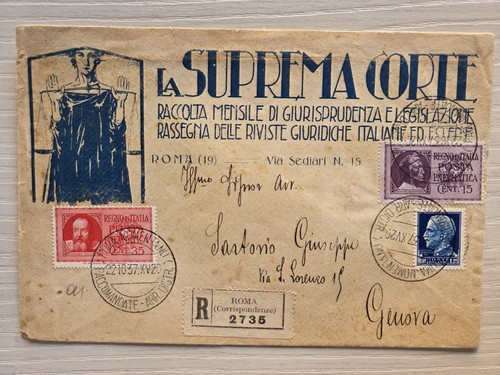 LA SUPREMA CORTE
RACCOLTA MENSILE DI GIURISPRUDENZA E LEGISLAZIONE
RASSEGNA DELLE RIVISTE GIURIDICHE ITALIANE ED ESTERE
ROMA (19) Via Sediari N. 15
REGNO D'ITALIA
POSTA
PNEUMATICA
CENT. 15
Signor Avv.
REGNO D'ITALIA
CENT. 35
ROMA NOMENTANO
22 10 37 XV 20
RACCOMANDATE
Sartorio Giuseppe
Via S. Lorenzo 15
R
ROMA
(Corrispondenze)
2735
Genova